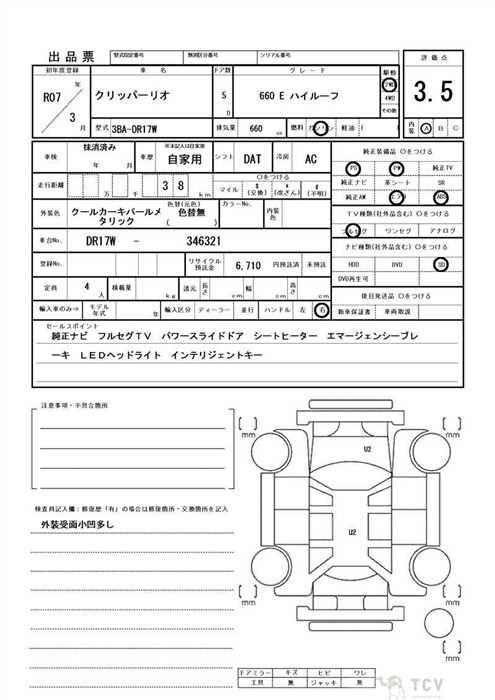 出品票 型式指定番号 類別区分番号 シリアル番号
評価点
初年度登録 車名 ドア数 グレード 駆動
R07 年 3 月
クリッパーリオ 5 D 660 E ハイルーフ
2WD 4WD その他
3.5
型式 3BA-DR17W 排気量 660 cc 燃料 ガソリン 軽油 ( )
内装 A B C
車検 抹消済み 年 月 車歴 ※未記入は自家用 自家用 シフト DAT 冷房 AC
純正装備品 〇をつける
PS PW 純正TV
純正ナビ 革シート SR
純正AW エアB ABS
走行距離 万 千 3 8 km
〇をつける
マイル $ (交換) * (改ざん) # (不明)
外装色 クールカーキパールメタリック 色替(元色) 色替無 カラーNo. 内装色
TV種類(社外品含む) 〇をつける
フルセグ ワンセグ アナログ
ナビ種類(社外品含む) 〇をつける
HDD DVD SD
DVD再生可
車台No. DR17W - 346321
登録No. リサイクル預託金 6,710 円預託済 未預託
定員 4 人 積載量 kg 諸元 長さ cm 幅 cm 高さ cm
後日発送品 〇をつける
新車保証書 車両取説
輸入車のみ⇒ モデル年式 年 輸入区分 ディーラー 並行 ハンドル 左 右
セールスポイント
純正ナビ フルセグTV パワースライドドア シートヒーター エマージェンシーブレ
ーキ LEDヘッドライト インテリジェントキー
注意事項・不具合箇所
検査員記入欄:修復歴「有」の場合は修復箇所・交換箇所をご記入ください
外装受面小凹多し
[ ] mm
[ ] mm
U2
U2
[ ] mm
[ ] mm
ドアミラー キズ ヒビ ワレ
工具 無 ジャッキ 無
TCV